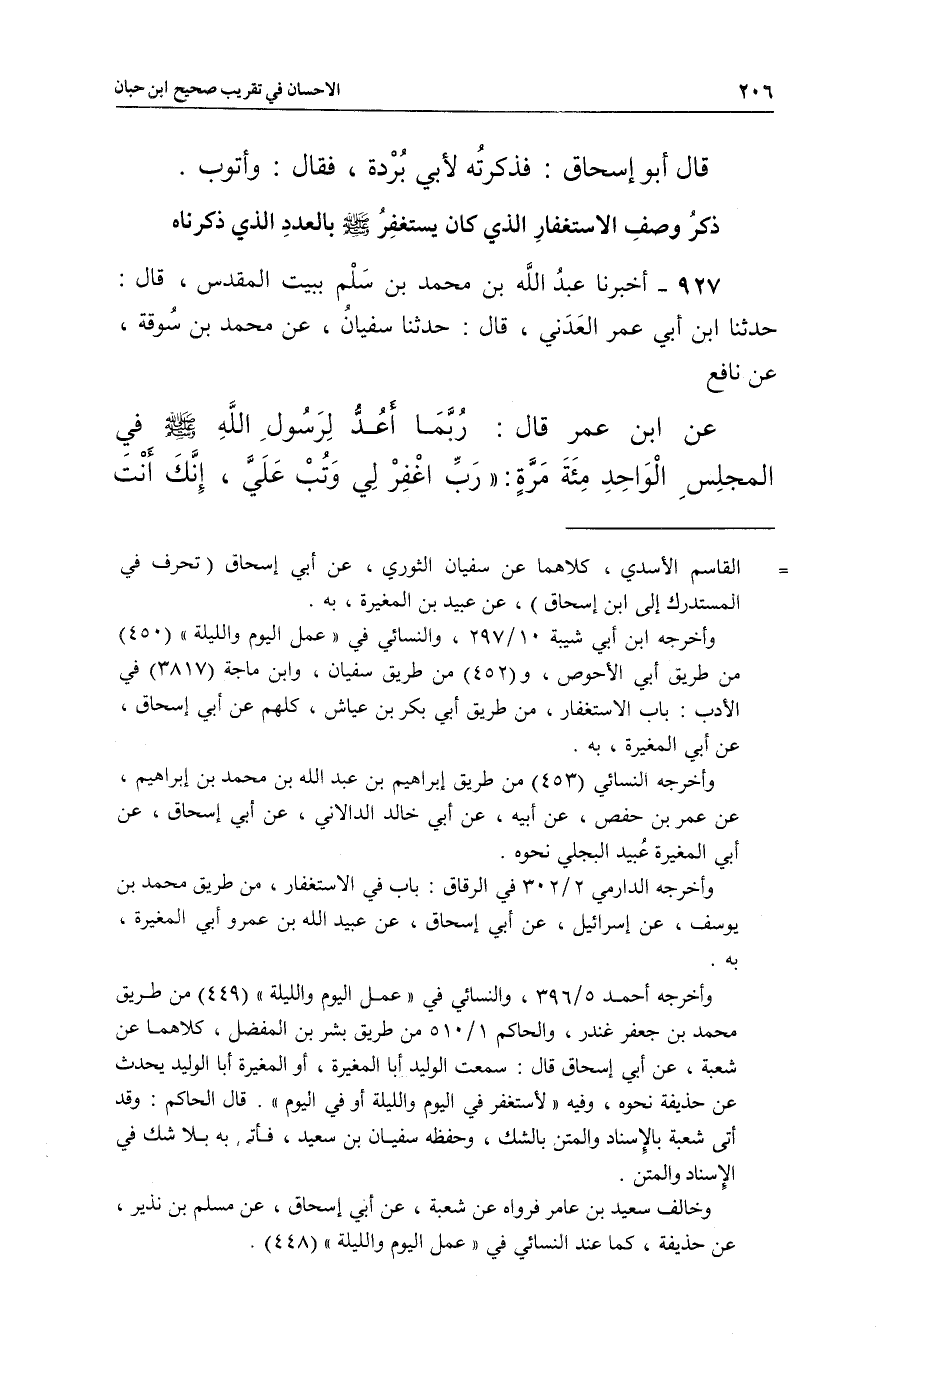 ٢٠٦ الاحسان في تقريب صحيح ابن حبان
قال أبو إسحاق : فذكرتُه لأبي بُرْدة ، فقال : وأتوب .
ذكرُ وصفِ الاستغفارِ الذي كان يستغفِرُ ﷺ بالعددِ الذي ذكرناه
٩٢٧ ـ أخبرنا عبدُ اللَّه بن محمد بن سَلْم ببيت المقدس ، قال :
حدثنا ابن أبي عمر العَدَني ، قال : حدثنا سفيانُ ، عن محمد بن سُوقة ،
عن نافع
عن ابن عمر قال : رُبَّمَا أَعُدُّ لِرَسُولِ اللَّهِ ﷺ في
المجلِسِ الْوَاحِدِ مِئَةَ مَرَّةٍ : « رَبِّ اغْفِرْ لِي وَتُبْ عَلَيَّ ، إِنَّكَ أَنْتَ
= القاسم الأسدي ، كلاهما عن سفيان الثوري ، عن أبي إسحاق ( تحرف في
المستدرك إلى ابن إسحاق ) ، عن عبيد بن المغيرة ، به .
وأخرجه ابن أبي شيبة ٢٩٧/١٠ ، والنسائي في « عمل اليوم والليلة » (٤٥٠)
من طريق أبي الأحوص ، و(٤٥٢) من طريق سفيان ، وابن ماجة (٣٨١٧) في
الأدب : باب الاستغفار ، من طريق أبي بكر بن عياش ، كلهم عن أبي إسحاق ،
عن أبي المغيرة ، به .
وأخرجه النسائي (٤٥٣) من طريق إبراهيم بن عبد الله بن محمد بن إبراهيم ،
عن عمر بن حفص ، عن أبيه ، عن أبي خالد الدالاني ، عن أبي إسحاق ، عن
أبي المغيرة عُبيد البجلي نحوه .
وأخرجه الدارمي ٣٠٢/٢ في الرقاق : باب في الاستغفار ، من طريق محمد بن
يوسف ، عن إسرائيل ، عن أبي إسحاق ، عن عبيد الله بن عمرو أبي المغيرة ،
به .
وأخرجه أحمد ٣٩٦/٥ ، والنسائي في « عمل اليوم والليلة » (٤٤٩) من طريق
محمد بن جعفر غندر ، والحاكم ٥١٠/١ من طريق بشر بن المفضل ، كلاهما عن
شعبة ، عن أبي إسحاق قال : سمعت الوليد أبا المغيرة ، أو المغيرة أبا الوليد يحدث
عن حذيفة نحوه ، وفيه « لأستغفر في اليوم والليلة أو في اليوم » . قال الحاكم : وقد
أتى شعبة بالإسناد والمتن بالشك ، وحفظه سفيان بن سعيد ، به بلا شك في
الإسناد والمتن .
وخالف سعيد بن عامر فرواه عن شعبة ، عن أبي إسحاق ، عن مسلم بن نذير ،
عن حذيفة ، كما عند النسائي في « عمل اليوم والليلة » (٤٤٨) .